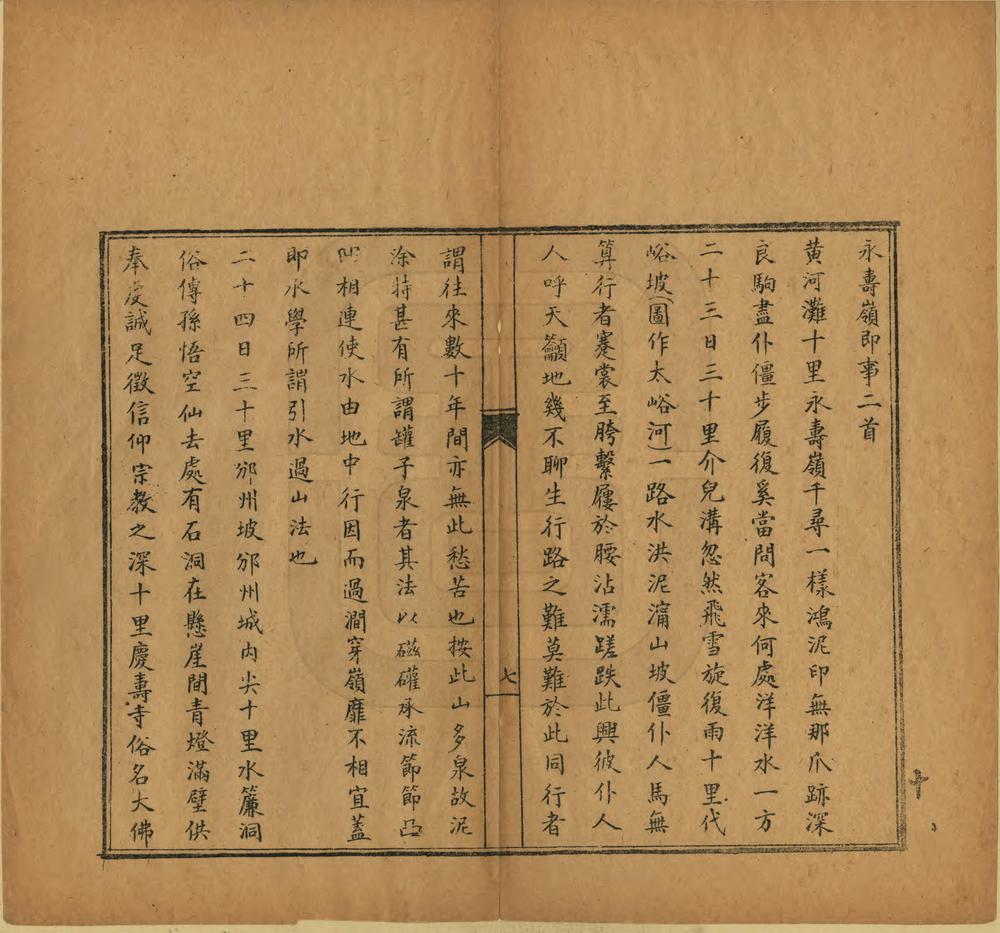 永壽嶺即事二首
黃河灘十里永壽嶺千尋一樣鴻泥印無那爪跡深
良駒盡仆僵步履復奚當問客來何處洋洋水一方
二十三日三十里介兒溝忽然飛雪旋復雨十里代
峪坡(圖作太峪河)一路水洪泥濘山坡僵仆人馬無
算行者蹇裳至胯繫屨於腰沾濡蹉跌此興彼仆人
人呼天籲地幾不聊生行路之難莫難於此同行者
七
謂往來數十年間亦無此愁苦也按此山多泉故泥
涂特甚有所謂罐子泉者其法以磁礶承流節節凸
凹相連使水由地中行因而過澗穿嶺靡不相宜蓋
即水學所謂引水過山法也
二十四日三十里邠州坡邠州城內尖十里水簾洞
俗傳孫悟空仙去處有石洞在懸崖間青燈滿壁供
奉虔誠足徵信仰宗教之深十里慶壽寺俗名大佛
十